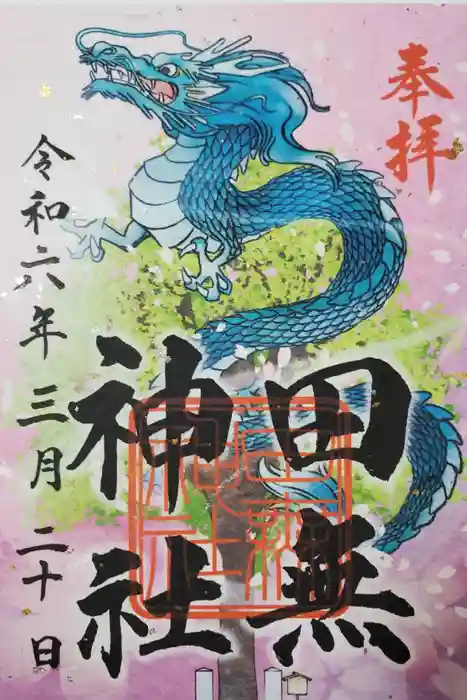 奉拝
田無
神社
令和六年三月二十日